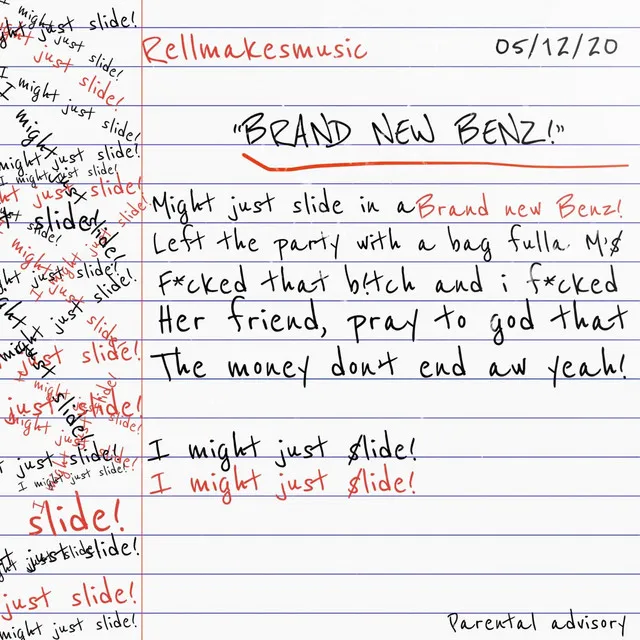 Rellmakesmusic
05/12/20
"BRAND NEW BENZ!"
Might just slide in a Brand new Benz!
Left the party with a bag fulla M'$
F*cked that b!tch and i f*cked
Her friend, pray to god that
The money don't end aw yeah!
I might just $lide!
I might just $lide!
Parental advisory
might just slide!
just slide!
I might just slide!
might just slide!
I might just slide!
just slide!
slide!
just slide!
might just slide!
just slide!
just slide!
just slide!
I might just slide!
slide!
just slide!
just slide!
might just slide!